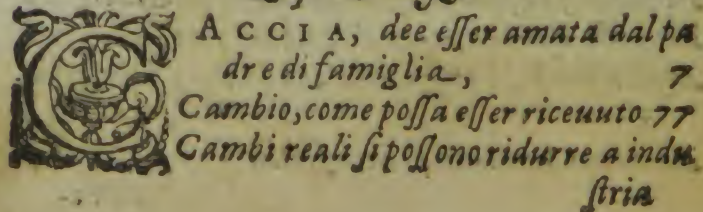 CACCIA, dee esser amata dal pa
dre di famiglia, 7
Cambio, come possa esser riceuuto 77
Cambi reali si possono ridurre a indu
stria